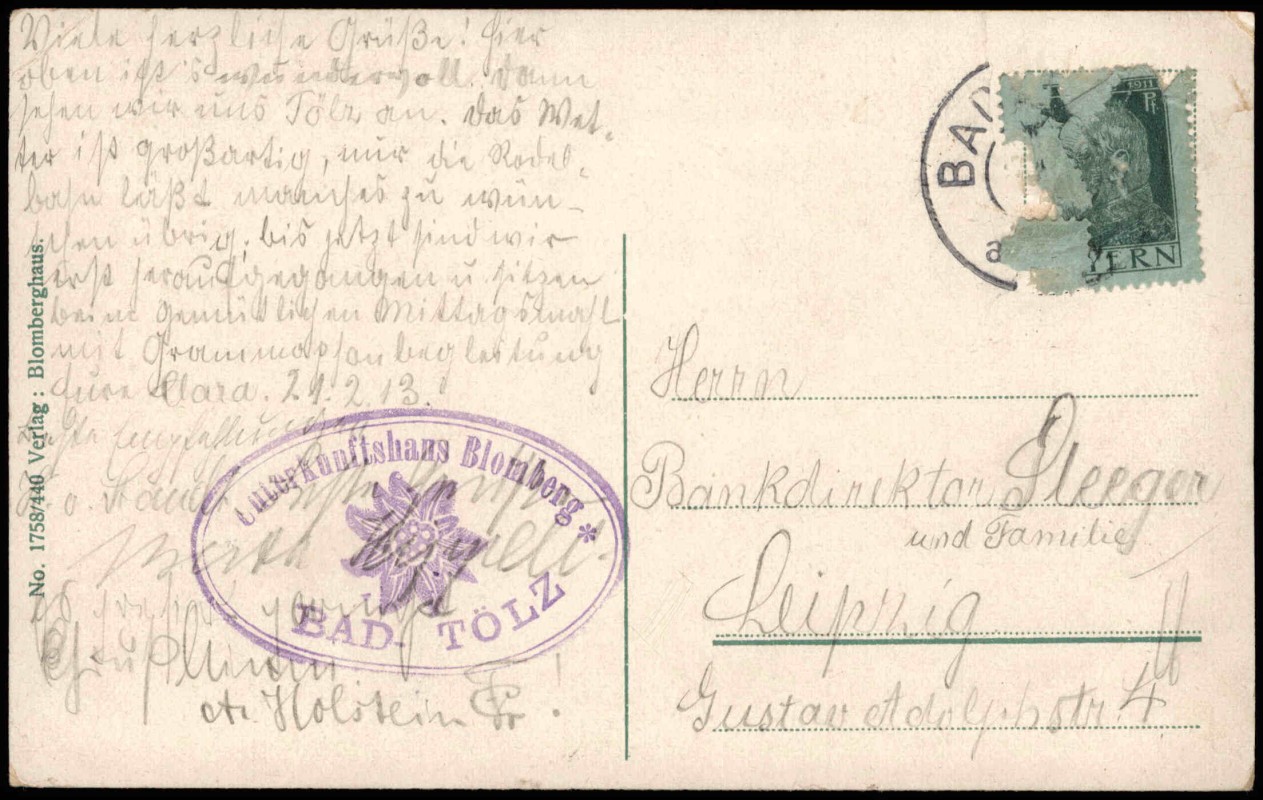 Viele herzliche Grüße! Hier
oben ist's wundervoll. Dann
sehen wir uns Tölz an. Das Wet-
ter ist großartig, nur die Rodel-
bahn läßt manches zu wün-
schen übrig. bis jetzt sind wir
erst heraufgegangen u. sitzen
beim gemütlichen Mittagsmahl
mit Grammophonbegleitung
Eure Clara. 21.2.13.
Beste Empfehlungen
Gruß
A. Holstein Fr.!
No. 1758/440 Verlag: Blomberghaus.
Unterkunftshaus Blomberg *
BAD. TÖLZ
BAD
a
1911
Pf
YERN
Herrn
Bankdirektor
und Familie
Leipzig
Gustav Adolphstr. 4